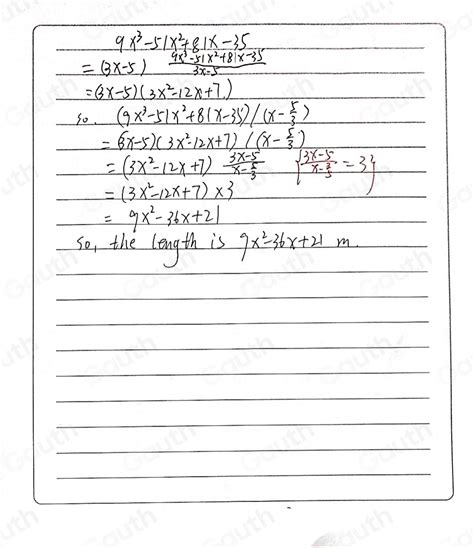 9x³-51x²+81x-35
= (3x-5) 9x³-51x²+81x-35 / 3x-5
= (3x-5)(3x²-12x+7)
so. (9x³-51x²+81x-35)/(x-5/3)
= (3x-5)(3x²-12x+7)/(x-5/3)
= (3x²-12x+7) 3x-5 / x-5/3 {3x-5 / x-5/3 = 3}
= (3x²-12x+7)×3
= 9x²-36x+21
so, the length is 9x²-36x+21 m.
Gauth